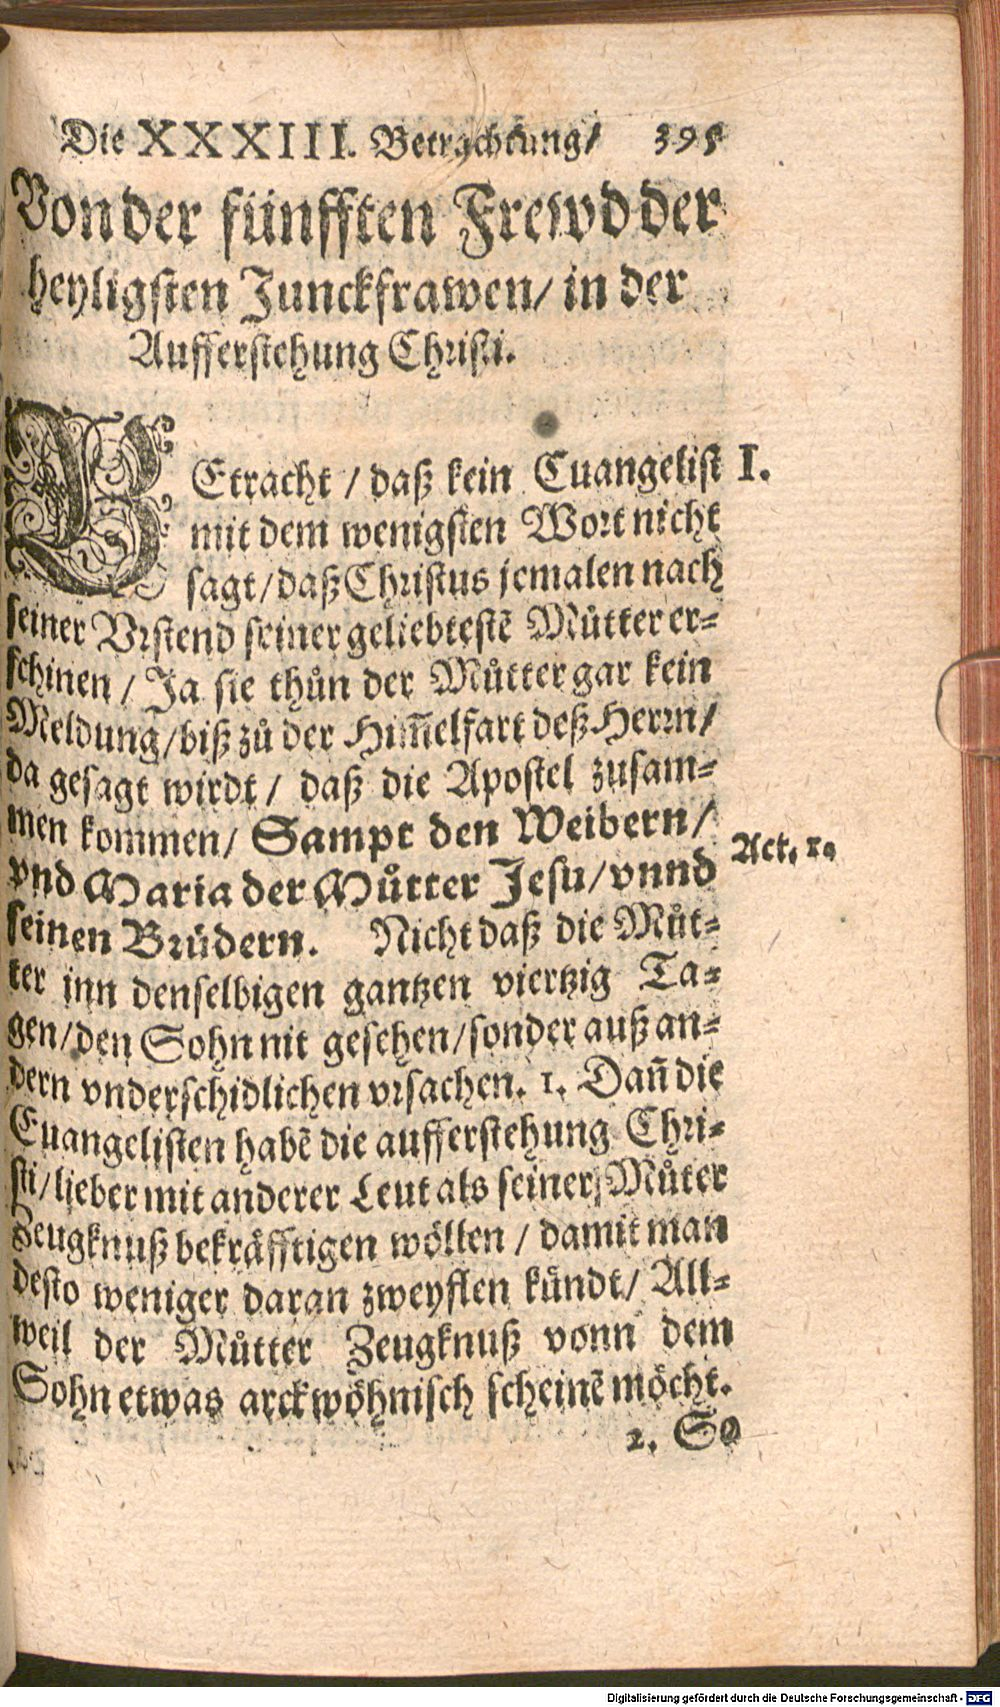 Die XXXIII. Betrachtung/ 395
Von der fünfften Frewd der
heyligsten Junckfrawen/ in der
Aufferstehung Christi.
BEtracht / daß kein Euangelist I.
mit dem wenigsten Wort nicht
sagt/ daß Christus jemalen nach
seiner Vrstend seiner geliebtestẽ Mütter er⸗
schinen / Ja sie thůn der Můtter gar kein
Meldung/ biß zů der Him̃elfart deß Herrn/
da gesagt wirdt / daß die Apostel zusam⸗
men kommen/ Sampt den Weibern/
vnd Maria der Můtter Jesu/ vnnd Act. 1.
seinen Brüdern. Nicht daß die Můt⸗
ter inn denselbigen gantzen viertzig Ta⸗
gen/ den Sohn nit gesehen/ sonder auß an⸗
dern vnderschidlichen vrsachen. 1. Dañ die
Euangelisten habẽ die aufferstehung Chri⸗
sti/ lieber mit anderer Leut als seiner Můter
Zeugknuß bekräfftigen wöllen / damit man
desto weniger daran zweyflen kündt/ All⸗
weil der Můtter Zeugknuß vonn dem
Sohn etwas arckwöhnisch scheinẽ möcht.
2. So
Digitalisierung gefördert durch die Deutsche Forschungsgemeinschaft - DFG